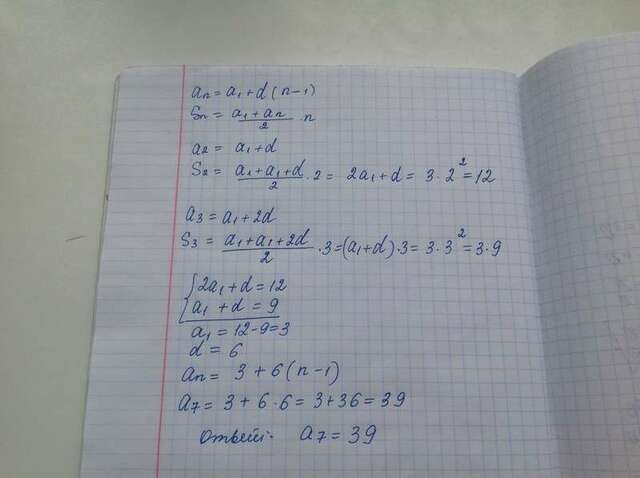 an = a1 + d (n-1)
Sn = (a1 + an)/2 · n
a2 = a1 + d
S2 = (a1 + a1 + d)/2 · 2 = 2a1 + d = 3 · 2² = 12
a3 = a1 + 2d
S3 = (a1 + a1 + 2d)/2 · 3 = (a1 + d) · 3 = 3 · 3² = 3 · 9
{2a1 + d = 12
a1 + d = 9
a1 = 12 - 9 = 3
d = 6
an = 3 + 6 (n-1)
a7 = 3 + 6 · 6 = 3 + 36 = 39
Ответ: a7 = 39